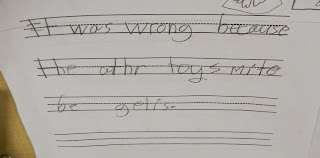 It was wrong because
the othr toys mite
be gelis.